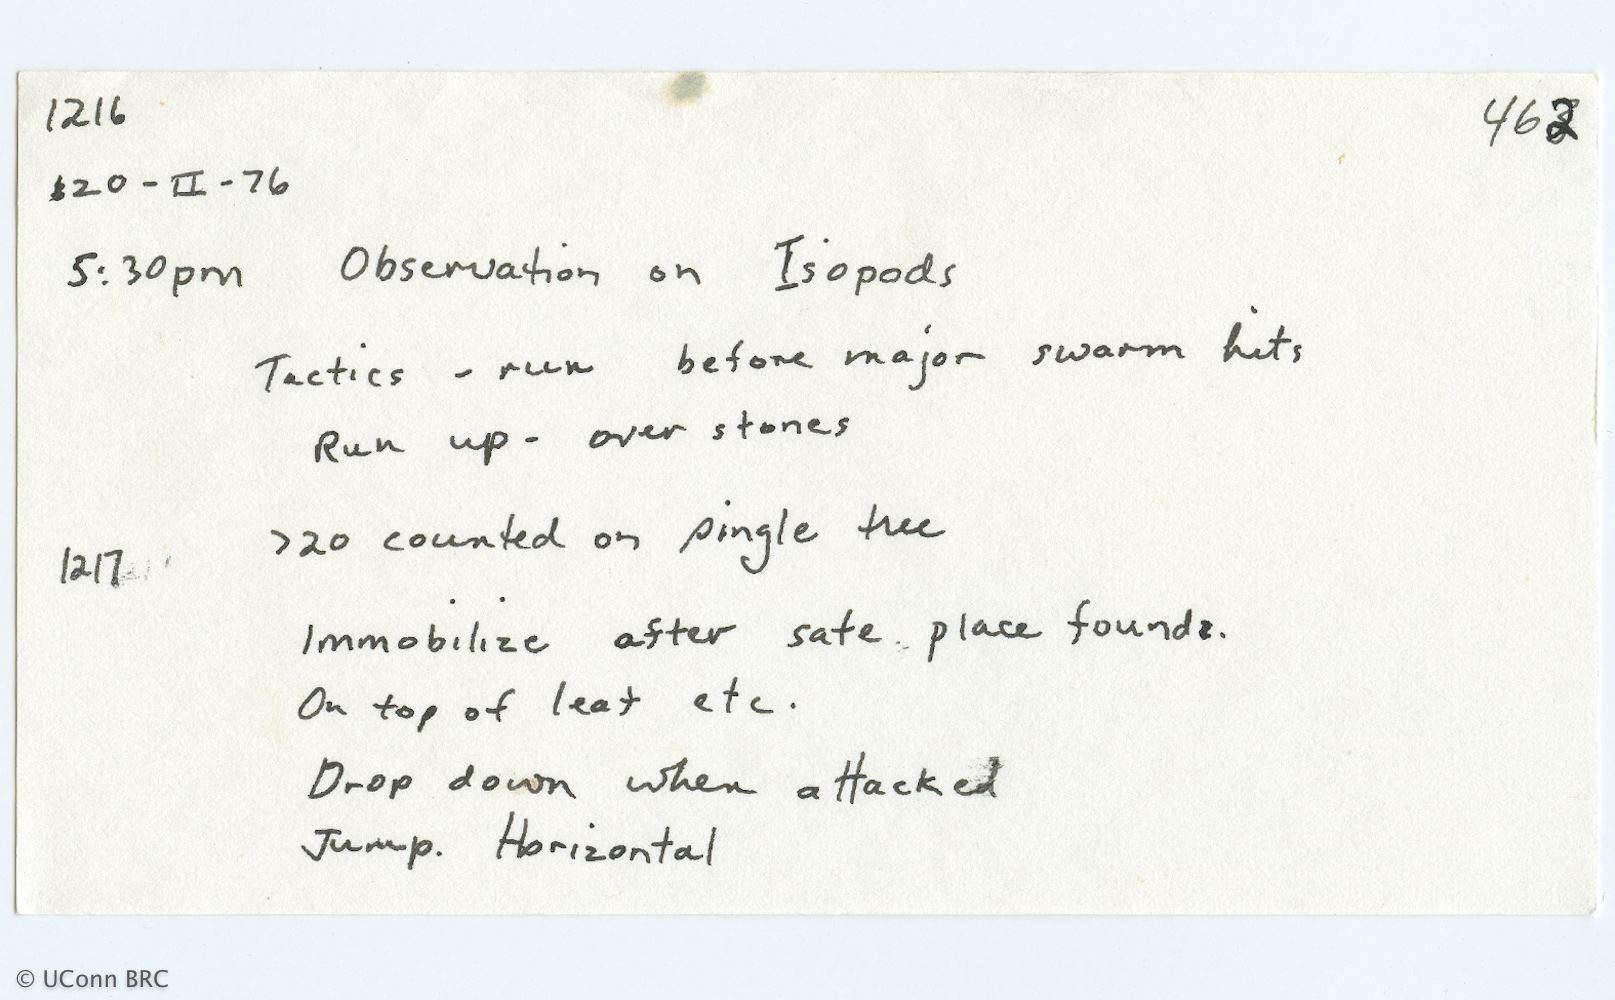 1216
462
20-II-76
5:30pm Observation on Isopods
Tactics - run before major swarm hits
Run up - over stones
>20 counted on single tree
1217
Immobilize after safe place found.
On top of leaf etc.
Drop down when attacked
Jump. Horizontal
© UConn BRC